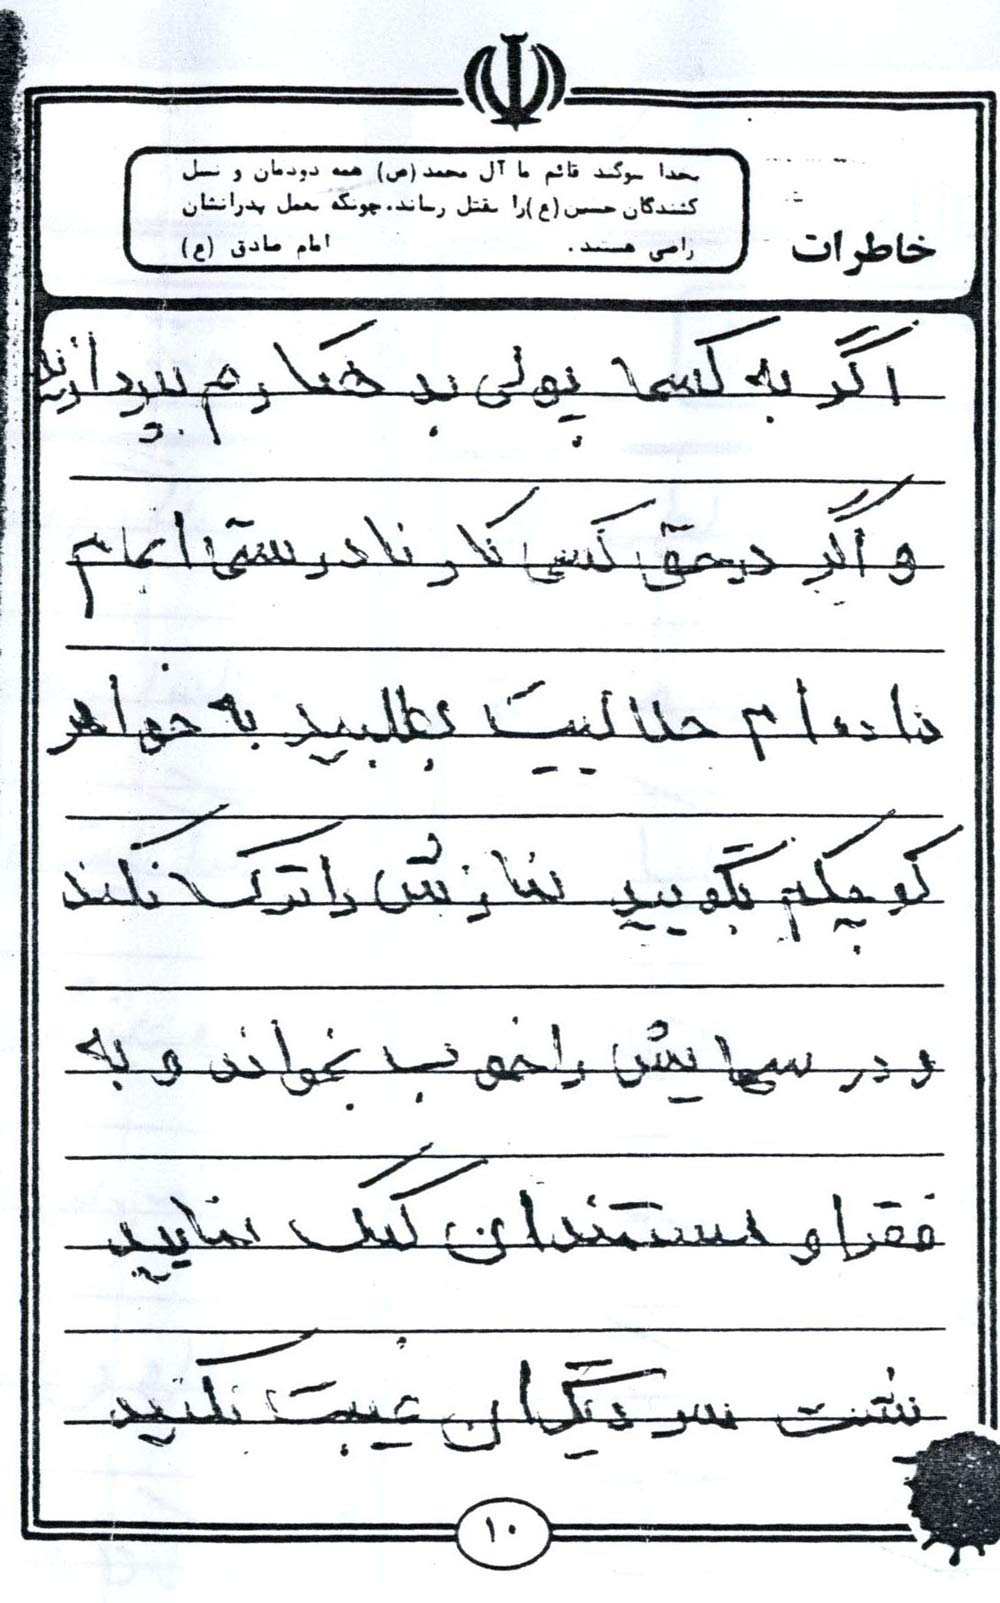 بخدا سوگند قائم ما آل محمد (ص) همه دودمان و نسل
کشندگان حسین (ع) را بقتل رساند. چونکه بعمل پدرانشان
راضی هستند. امام صادق (ع)
خاطرات
اگر به کسی پولی بدهکارم بپردازید
و اگر در حق کسی کار نادرستی انجام
داده ام حلالیت بطلبید به خواهر
کوچکم بگویید نمازش را ترک نکند
و درسهایش را خوب بخواند و به
فقرا و مستمندان کمک نمایید
پشت سر دیگران غیبت نکنید
۱۰